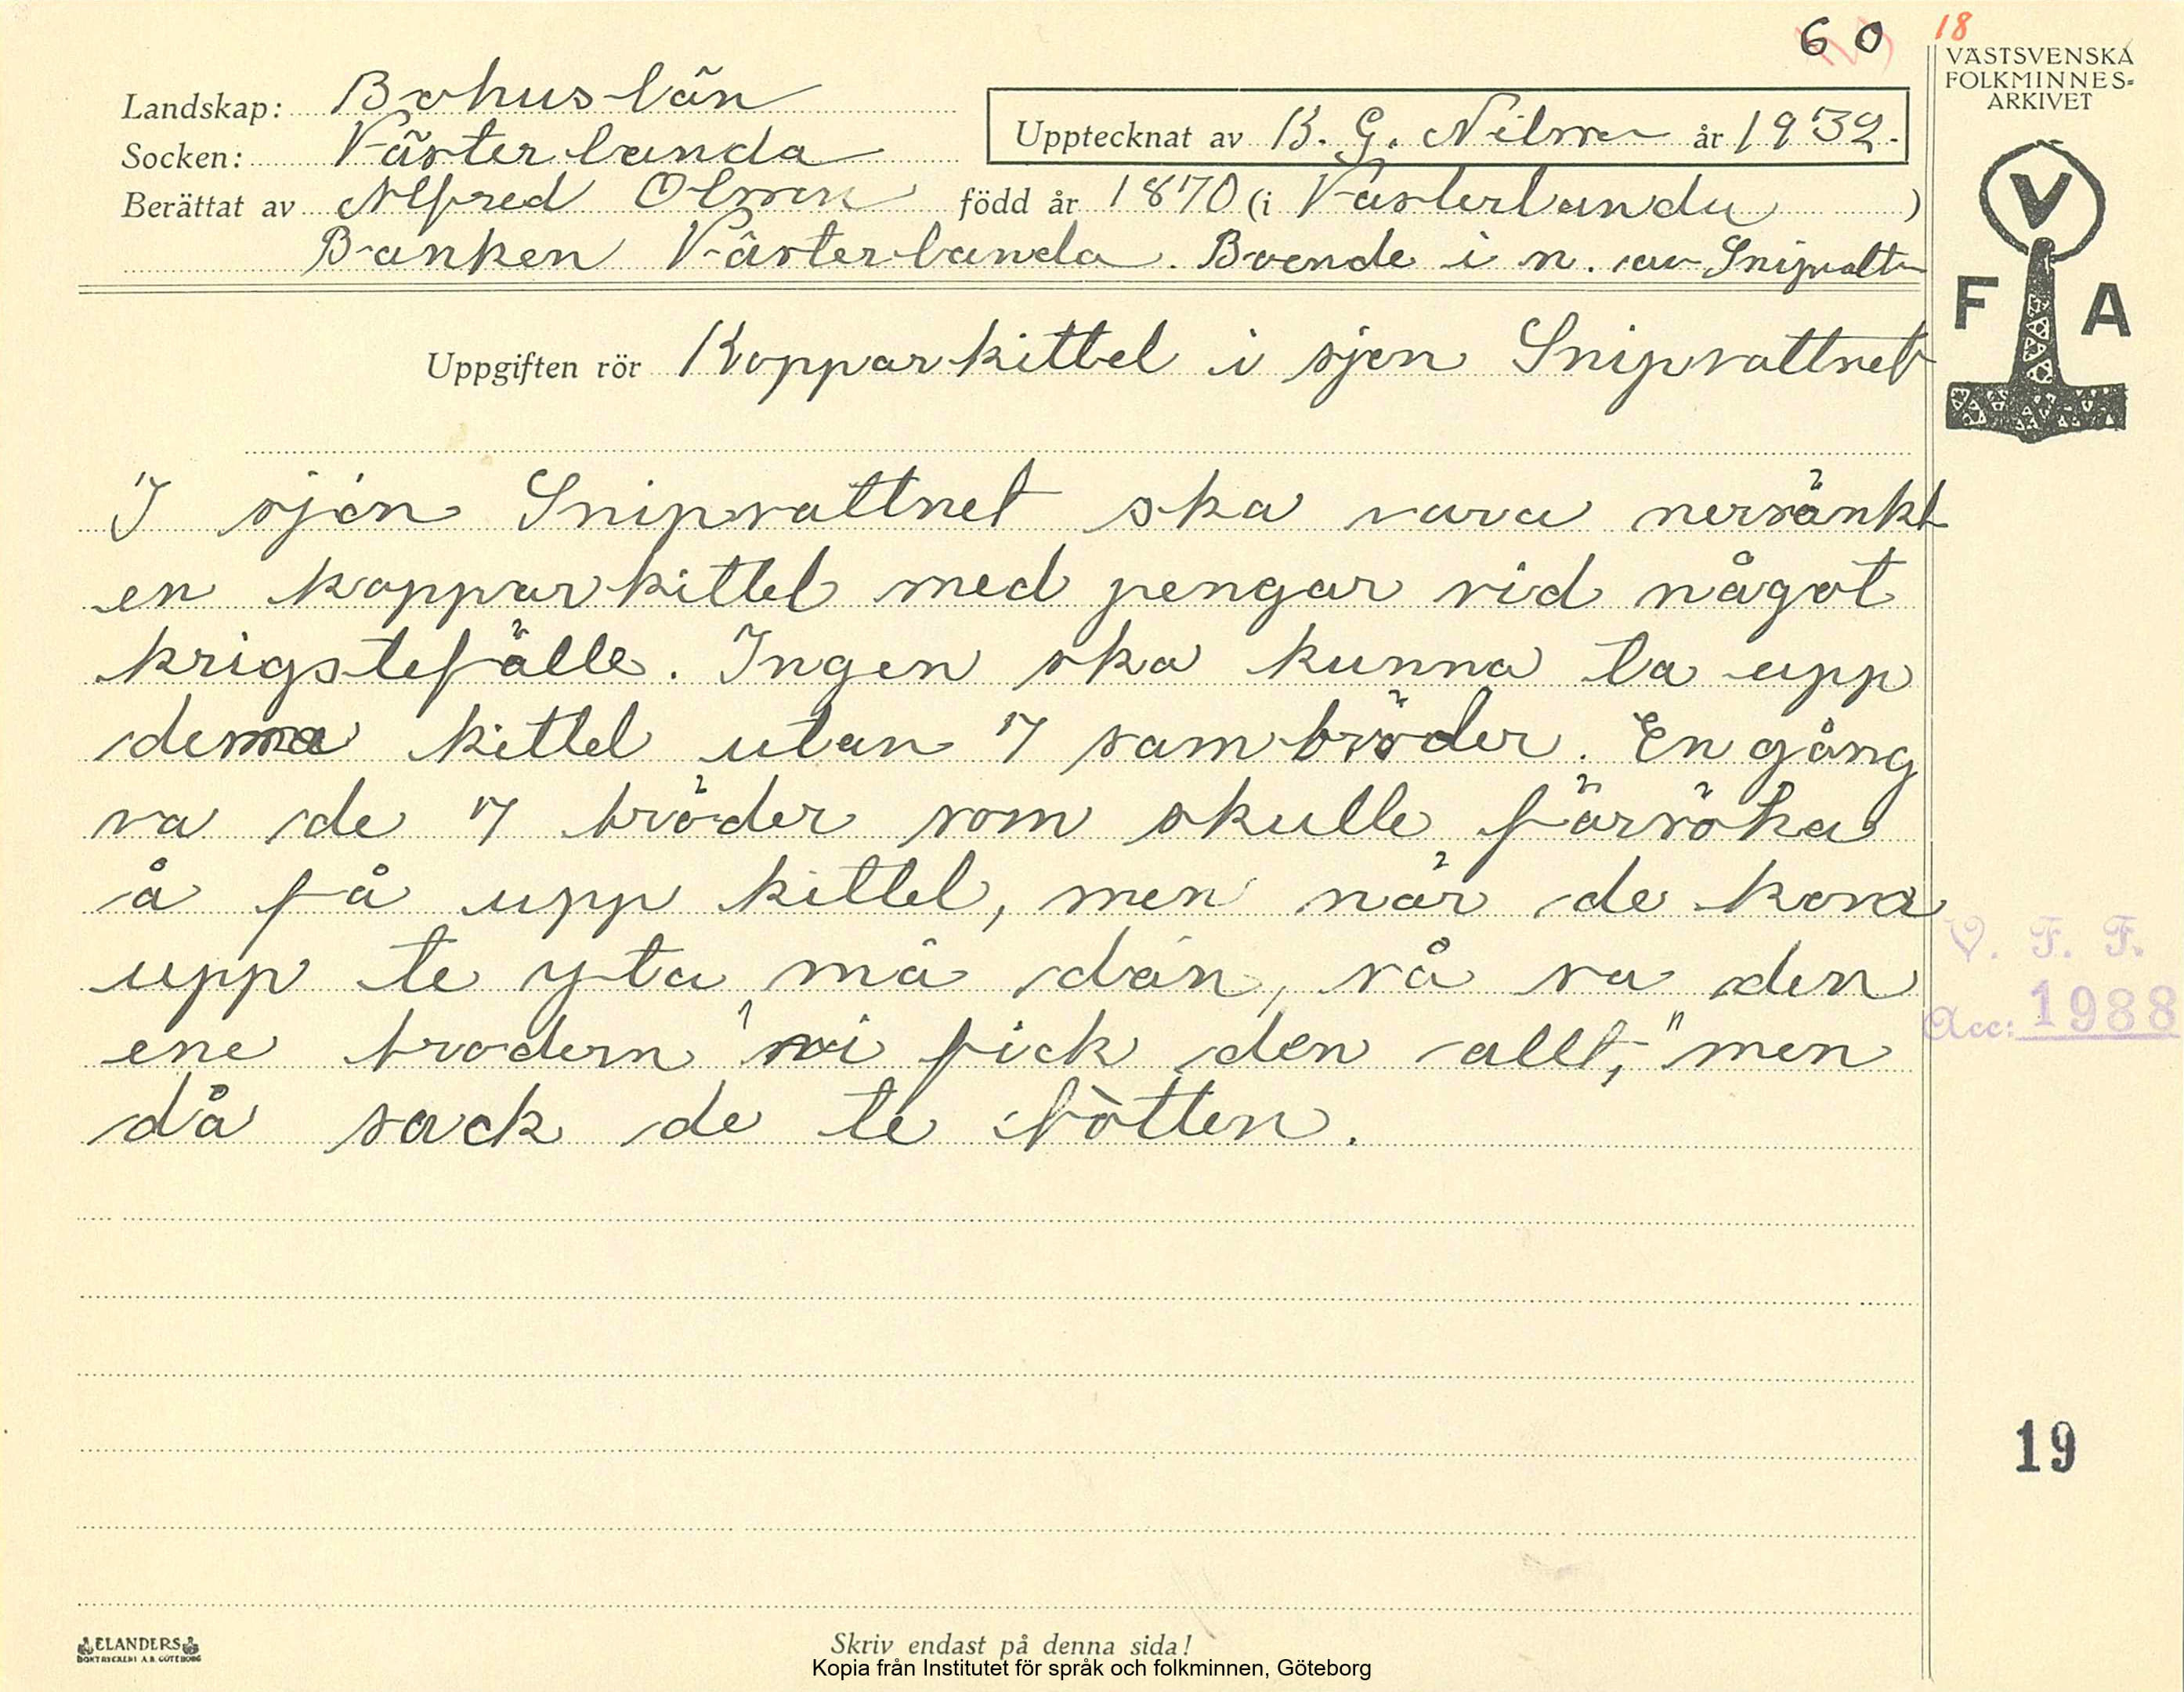 60
18
VÄSTSVENSKA
FOLKMINNES=
ARKIVET
Landskap: Bohuslän
Upptecknat av K. G. Nilson år 1932.
Socken: Västerlanda
Berättat av Alfred Olson född år 1870 (i Västerlanda)
Banken Västerlanda. Boende i n. av Snipvattn
V
F A
Uppgiften rör Kopparkittel i sjön Snipvattnet
I sjön Snipvattnet ska vara nersänkt
en kopparkittel med pengar vid något
krigstefälle. Ingen ska kunna ta upp
denna kittel utan 7 sambröder. En gång
va de 7 bröder som skulle färsöka
å få upp kittel, men när de kom
upp te yta mä dän, så sa den
ene brodern "vi fick den allt," men
då sack de te bòtten.
V. F. F.
Acc: 1988
19
ELANDERS
BOKTRYCKERI A.B. GÖTEBORG
Skriv endast på denna sida!
Kopia från Institutet för språk och folkminnen, Göteborg